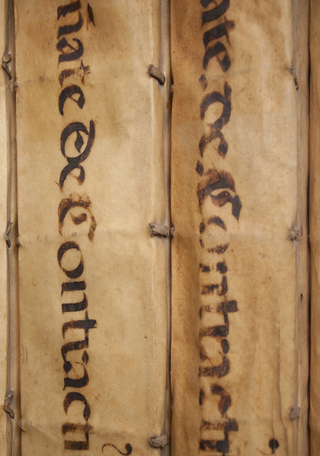 nate De Contract
ate De Contract